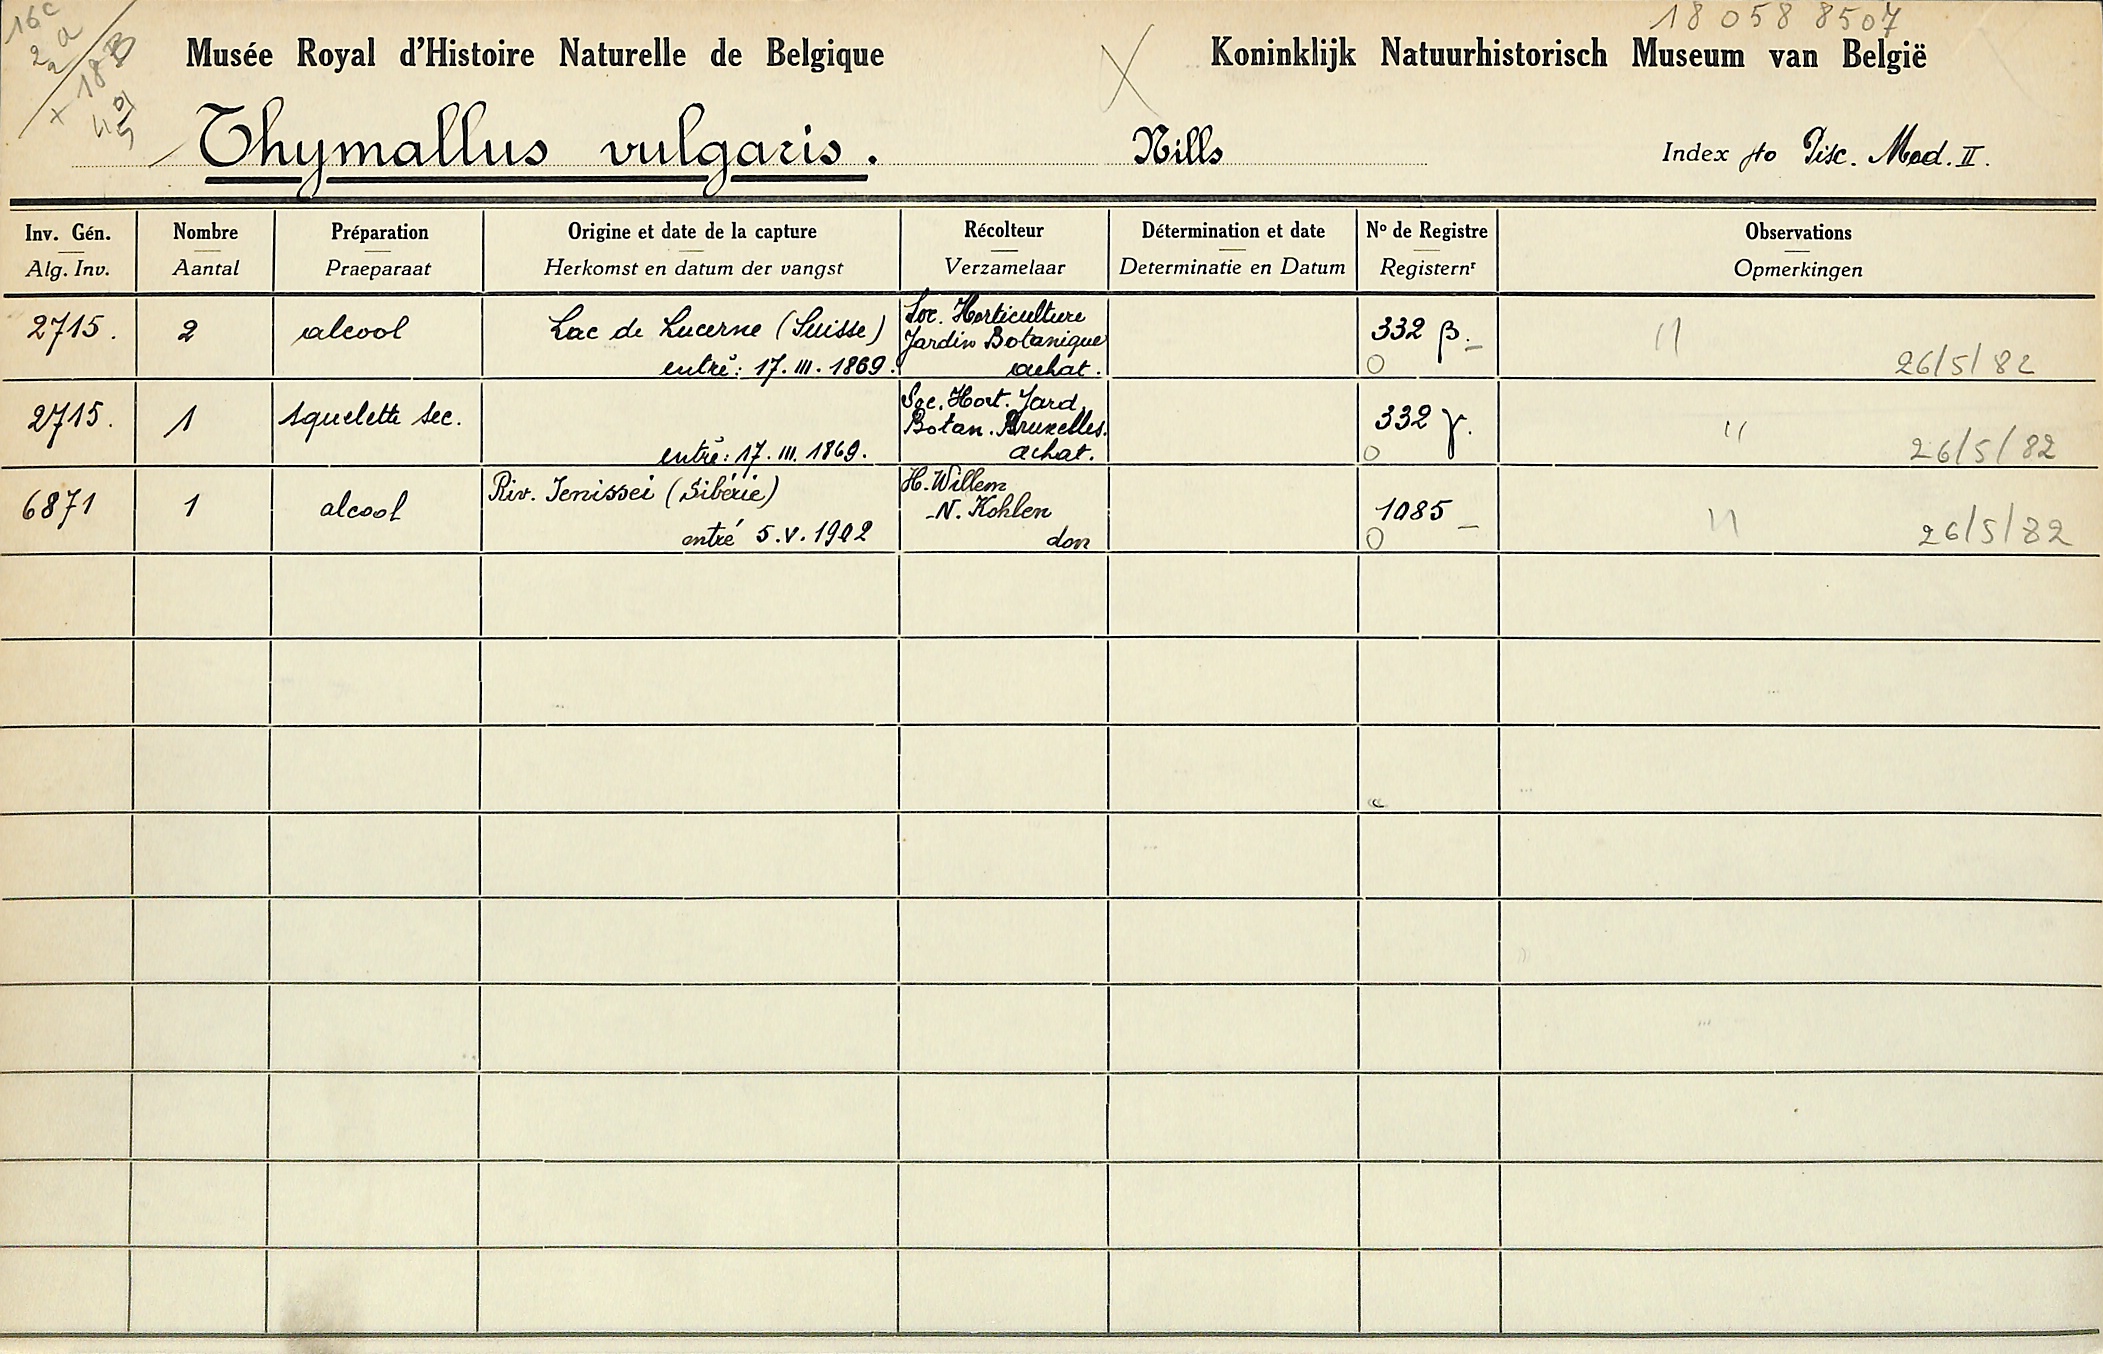 16c
2a
18B
18 058 8507
Musée Royal d'Histoire Naturelle de Belgique
Koninklijk Natuurhistorisch Museum van België
Thymallus vulgaris. Nills Index fto Pisc. Mod. II.
Inv. Gén. Nombre Préparation Origine et date de la capture Récolteur Détermination et date Nº de Registre Observations
Alg. Inv. Aantal Praeparaat Herkomst en datum der vangst Verzamelaar Determinatie en Datum Registernr Opmerkingen
2715. 2 alcool Lac de Lucerne (Suisse) Soc. Horticulture 332 β. 11
Jardin Botanique
entré: 17. III. 1869. achat. O 26/5/82
2715. 1 squelette sec. Soc. Hort. Jard. 332 γ. 11
Botan. Bruxelles.
entré: 17. III. 1869. achat. O 26/5/82
6871 1 alcool Riv. Jenissei (Sibérie) H. Willem 1085 11
N. Kohlen
entré 5.V.1902 don O 26/5/82